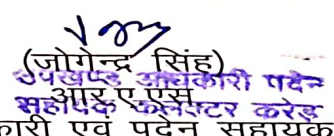 (जोगेन्द्र सिंह)
उपखण्ड अधिकारी पदेन
आर.ए.एस.
सहायक कलेक्टर करेड़ा
कारी एवं पदेन सहायक